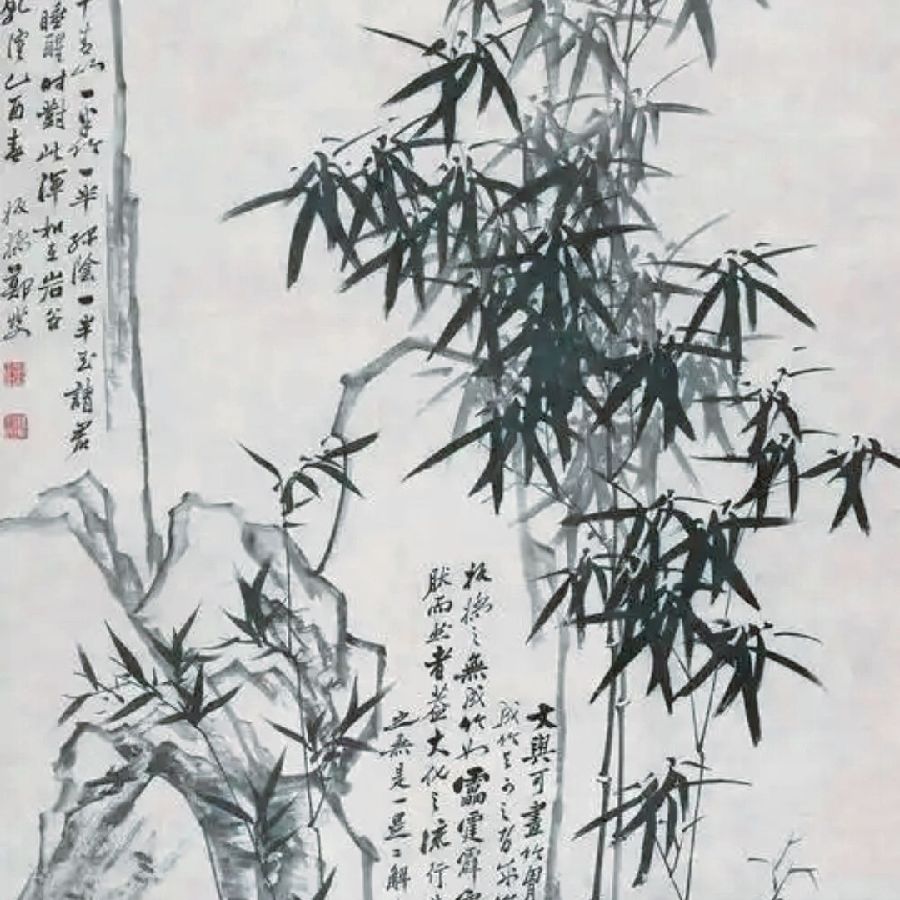 半青山一半竹一半綠陰一半玉請君
睡醒时對此渾如在岩谷
乾隆乙酉春 板橋鄭燮
文與可畫竹胸
成竹
板橋之無成竹如雷霆霹
然而然者蓋大化之流行
之無是一是二解